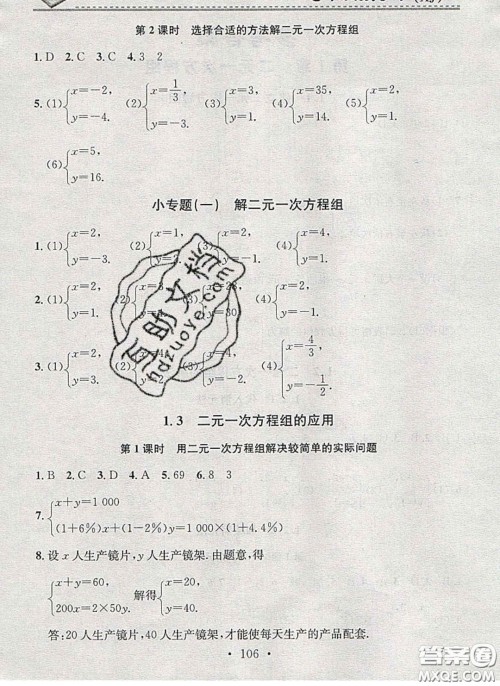 第2课时 选择合适的方法解二元一次方程组
1. D 2. C 3. C 4. 3 2
5. (1){x=-2, y=-4. (2){x=1/3, y=-3. (3){x=35, y=14. (4){x=2, y=1. (5){x=0, y=1.
(6){x=5, y=16.
小专题(一) 解二元一次方程组
1. (1){x=2, y=1. (2){x=1, (3) (4){x=4, y=1.
2. (1){x=2, y=3. (4){x=2, y=-1.
3. (1){x=2, y=3. y=1. y=-2. (4){x=4/3, y=-1/2.
1.3 二元一次方程组的应用
第1课时 用二元一次方程组解决较简单的实际问题
1. B 2. C 3. D 4. A 5. 69 6. 8 3
7. {x+y=1 000 (1+6%)x+(1-2%)y=1 000×(1+4.4%)
8. 设 x 人生产镜片, y 人生产镜架. 由题意, 得
{x+y=60, 200x=2×50y. 解得{x=20, y=40.
答: 20 人生产镜片, 40 人生产镜架, 才能使每天生产的产品配套.
· 106 ·
自助文档
bdzuoye.com
答案圈
MXQE.COM